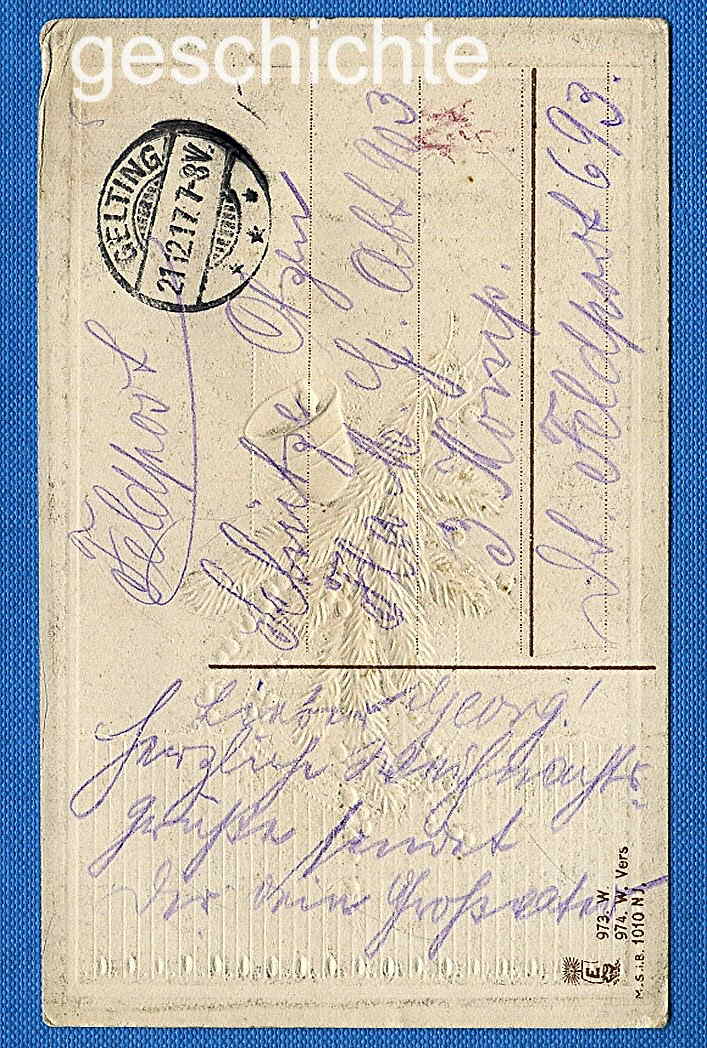 geschichte
GELTING
21.12.17.7-8V.
Feldpost
Schütze
3 Komp.
Dt Feldpost 693.
Lieber Georg!
Herzliche Weihnachts-
grüße sendet
Dir dein Großvater
973. W.
974. W. Vers
M. S. i. B. 1010 N J.
E